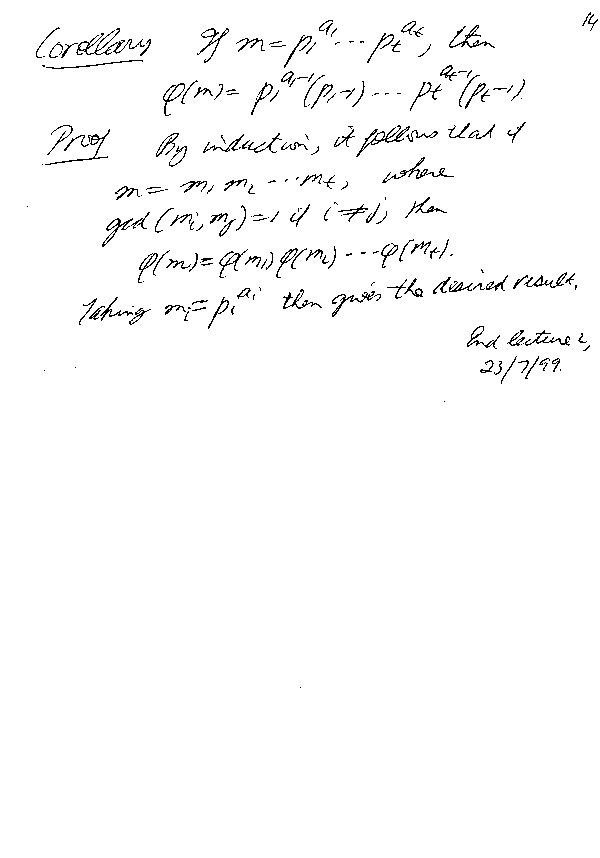 14
Corollary If m = p₁^{a₁} ··· p_t^{a_t}, then
φ(m) = p₁^{a₁-1}(p₁-1) ··· p_t^{a_t-1}(p_t-1).
Proof By induction, it follows that if
m = m₁ m₂ ··· m_t, where
gcd(m_i, m_j) = 1 if i ≠ j, then
φ(m) = φ(m₁) φ(m₂) ··· φ(m_t).
Taking m_i = p_i^{a_i} then gives the desired result.
End lecture 2,
23/7/99.